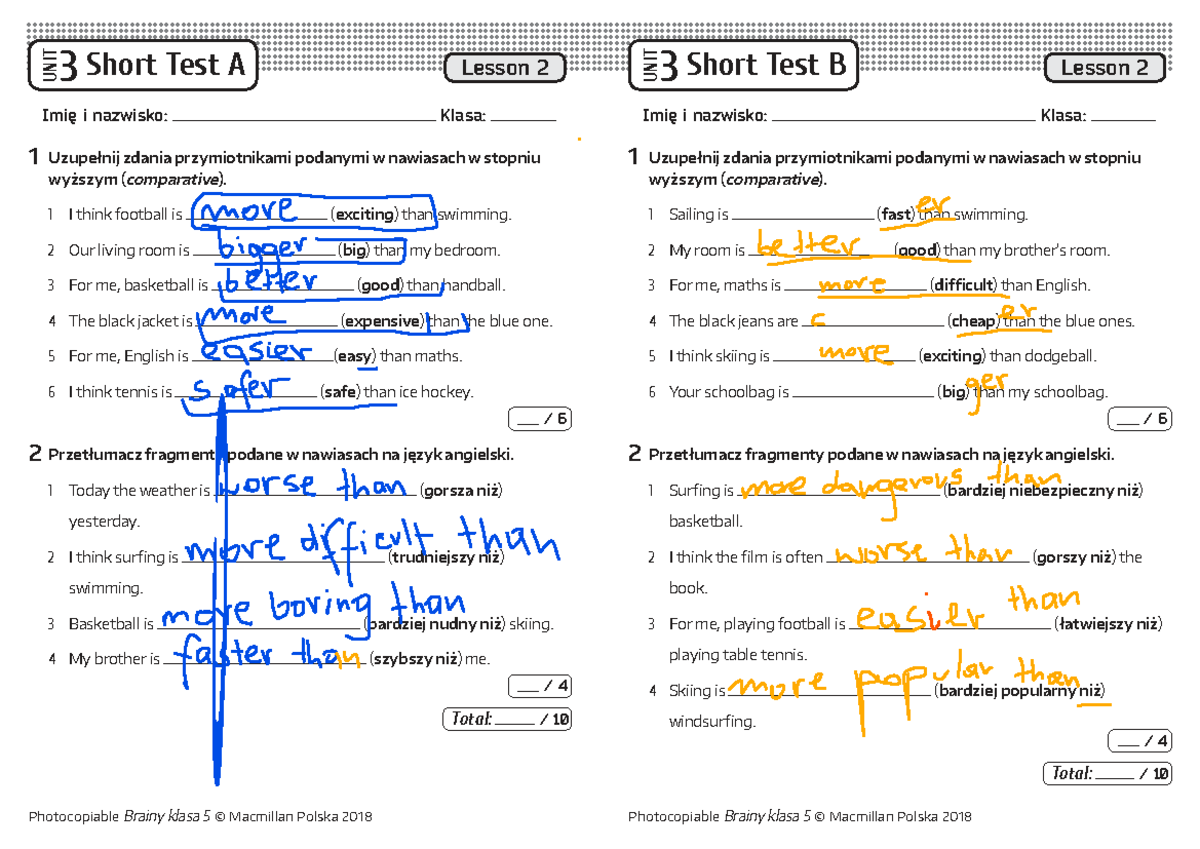 UNIT 3 Short Test A
Lesson 2
Imię i nazwisko: ____ Klasa: ____
1 Uzupełnij zdania przymiotnikami podanymi w nawiasach w stopniu
wyższym (comparative).
1 I think football is more (exciting) than swimming.
2 Our living room is bigger (big) than my bedroom.
3 For me, basketball is better (good) than handball.
4 The black jacket is more (expensive) than the blue one.
5 For me, English is easier (easy) than maths.
6 I think tennis is safer (safe) than ice hockey.
___ / 6
2 Przetłumacz fragmenty podane w nawiasach na język angielski.
1 Today the weather is worse than (gorsza niż)
yesterday.
2 I think surfing is more difficult than (trudniejszy niż)
swimming.
3 Basketball is more boring than (bardziej nudny niż) skiing.
4 My brother is faster than (szybszy niż) me.
___ / 4
Total: ____ / 10
Photocopiable Brainy klasa 5 © Macmillan Polska 2018
UNIT 3 Short Test B
Lesson 2
Imię i nazwisko: ____ Klasa: ____
1 Uzupełnij zdania przymiotnikami podanymi w nawiasach w stopniu
wyższym (comparative).
1 Sailing is ____ (fast) er than swimming.
2 My room is better (good) than my brother's room.
3 For me, maths is more (difficult) than English.
4 The black jeans are c (cheap) er than the blue ones.
5 I think skiing is more (exciting) than dodgeball.
6 Your schoolbag is ____ (big) ger than my schoolbag.
___ / 6
2 Przetłumacz fragmenty podane w nawiasach na język angielski.
1 Surfing is more dangerous than (bardziej niebezpieczny niż)
basketball.
2 I think the film is often worse than (gorszy niż) the
book.
3 For me, playing football is easier than (łatwiejszy niż)
playing table tennis.
4 Skiing is more popular than (bardziej popularny niż)
windsurfing.
___ / 4
Total: ____ / 10
Photocopiable Brainy klasa 5 © Macmillan Polska 2018